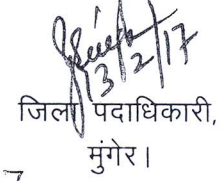 13/2/17
जिला पदाधिकारी,
मुंगेर।